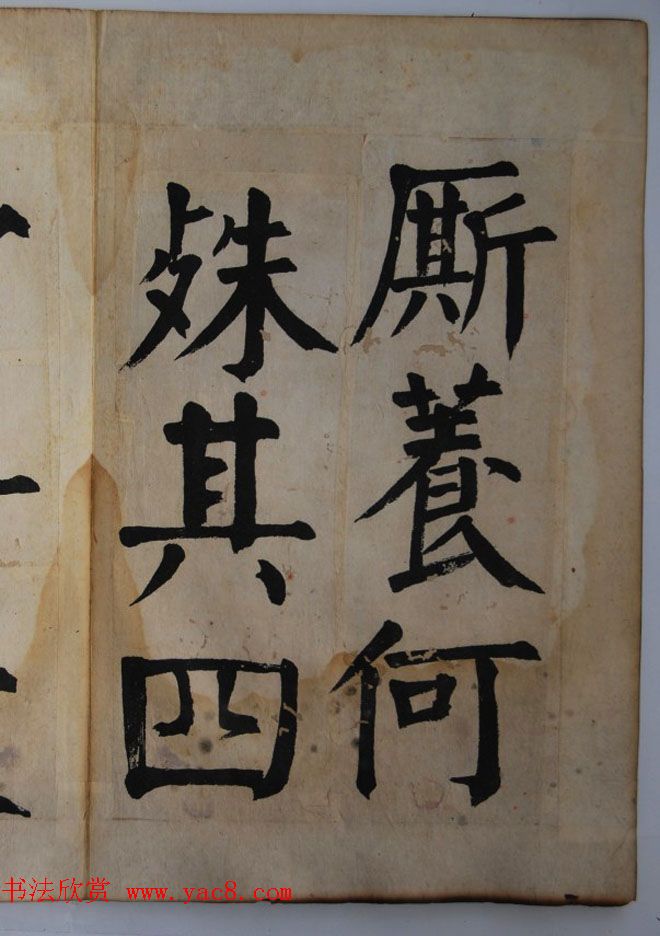 厮養何
殊其四
书法欣赏 www.yac8.com